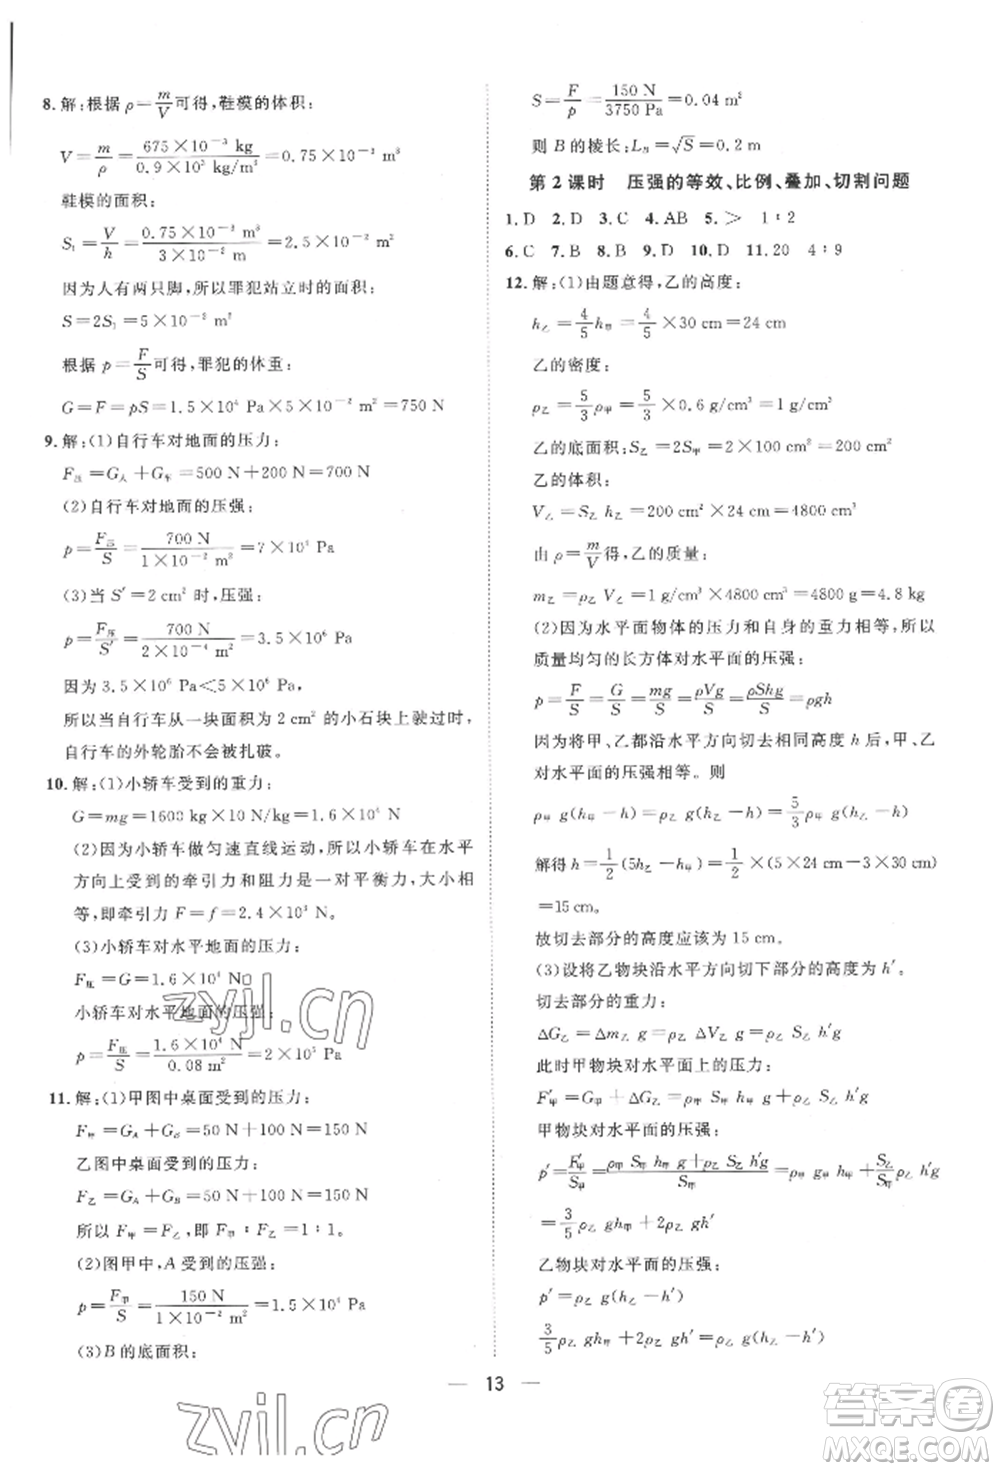 8. 解:根据 ρ=m/V 可得,鞋模的体积:
V=m/ρ=675×10⁻³ kg/0.9×10³ kg/m³=0.75 m³
鞋模的面积:
S₁=V/h=0.75×10⁻³ m³/3×10⁻² m=2.5×10⁻² m²
因为人有两只脚,所以罪犯站立时的面积:
S=2S₁=5×10⁻² m²
根据 p=F/S 可得,罪犯的体重:
G=F=pS=1.5×10⁴ Pa×5×10⁻² m²=750 N
9. 解:(1)自行车对地面的压力:
F压=G人+G车=500 N+200 N=700 N
(2)自行车对地面的压强:
p=F压/S=700 N/1×10⁻² m²=7×10⁴ Pa
(3)当 S′=2 cm² 时,压强:
p=F压/S′=700 N/2×10⁻⁴ m²=3.5×10⁶ Pa
因为 3.5×10⁶ Pa<5×10⁶ Pa,
所以当自行车从一块面积为 2 cm² 的小石块上驶过时,
自行车的外轮胎不会被扎破。
10. 解:(1)小轿车受到的重力:
G=mg=1600 kg×10 N/kg=1.6×10⁴ N
(2)因为小轿车做匀速直线运动,所以小轿车在水平
方向上受到的牵引力和阻力是一对平衡力,大小相
等,即牵引力 F=f=2.4×10³ N。
(3)小轿车对水平地面的压力:
F压=G=1.6×10⁴ N
小轿车对水平地面的压强:
p=F压/S=1.6×10⁴ N/0.08 m²=2×10⁵ Pa
11. 解:(1)甲图中桌面受到的压力:
F甲=G_A+G_B=50 N+100 N=150 N
乙图中桌面受到的压力:
F乙=G_A+G_B=50 N+100 N=150 N
所以 F甲=F乙,即 F甲∶F乙=1∶1.
(2)图甲中,A 受到的压强:
p=F甲/S=150 N/1×10⁻² m²=1.5×10⁴ Pa
(3)B 的底面积:
S=F/p=150 N/3750 Pa=0.04 m²
则 B 的棱长:L_B=√S=0.2 m
第 2 课时 压强的等效、比例、叠加、切割问题
1. D 2. D 3. C 4. AB 5. > 1∶2
6. C 7. B 8. B 9. D 10. D 11. 20 4∶9
12. 解:(1)由题意得,乙的高度:
h乙=4/5h甲=4/5×30 cm=24 cm
乙的密度:
ρ乙=5/3ρ甲=5/3×0.6 g/cm³=1 g/cm³
乙的底面积:S乙=2S甲=2×100 cm²=200 cm²
乙的体积:
V乙=S乙 h乙=200 cm²×24 cm=4800 cm³
由 ρ=m/V得,乙的质量:
m乙=ρ乙 V乙=1 g/cm³×4800 cm³=4800 g=4.8 kg
(2)因为水平面物体的压力和自身的重力相等,所以
质量均匀的长方体对水平面的压强:
p=F/S=G/S=mg/S=ρVg/S=ρShg/S=ρgh
因为将甲、乙都沿水平方向切去相同高度 h 后,甲、乙
对水平面的压强相等。则
ρ甲 g(h甲−h)=ρ乙 g(h乙−h)=5/3ρ甲 g(h乙−h)
解得 h=1/2(5h乙−3h甲)=1/2×(5×24 cm−3×30 cm)
=15 cm。
故切去部分的高度应该为 15 cm。
(3)设将乙物块沿水平方向切下部分的高度为 h′。
切去部分的重力:
ΔG乙=Δm乙 g=ρ乙 ΔV乙 g=ρ乙 S乙 h′g
此时甲物块对水平面上的压力:
F′甲=G甲+ΔG乙=ρ甲 S甲 h甲 g+ρ乙 S乙 h′g
甲物块对水平面的压强:
p′=F′甲/S甲=ρ甲 S甲 h甲 g+ρ乙 S乙 h′g/S甲=ρ甲 gh甲+ρ乙 S乙/S甲 h′g
=3/5ρ乙 gh甲+2ρ乙 gh′
乙物块对水平面的压强:
p′=ρ乙 g(h乙−h′)
3/5ρ乙 gh甲+2ρ乙 gh′=ρ乙 g(h乙−h′)
— 13 —
zyjl.cn
zyjl.cn
答案卷
MXQE.COM